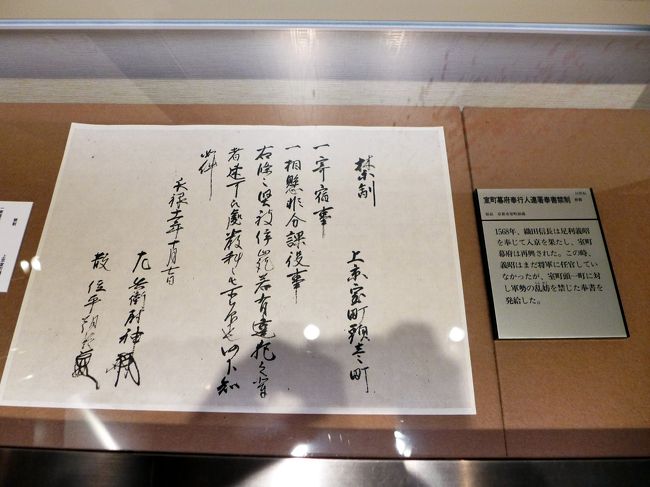 禁制
上京室町頭壱町
一寄宿事
一相懸非分課役事
右條々堅被停止訖若有違犯之輩
者速可被處厳科之由所被仰下也仍下知
如件
永禄十一年十月十日
左兵衛尉神
散位平朝臣
室町幕府奉行人連署奉書禁制
1568年、織田信長は足利義昭
を奉じて入京を果たし、室町
幕府は再興された。この時、
義昭はまだ将軍に任官してい
なかったが、室町頭一町に対
し軍勢の乱妨を禁じた奉書を
発給した。